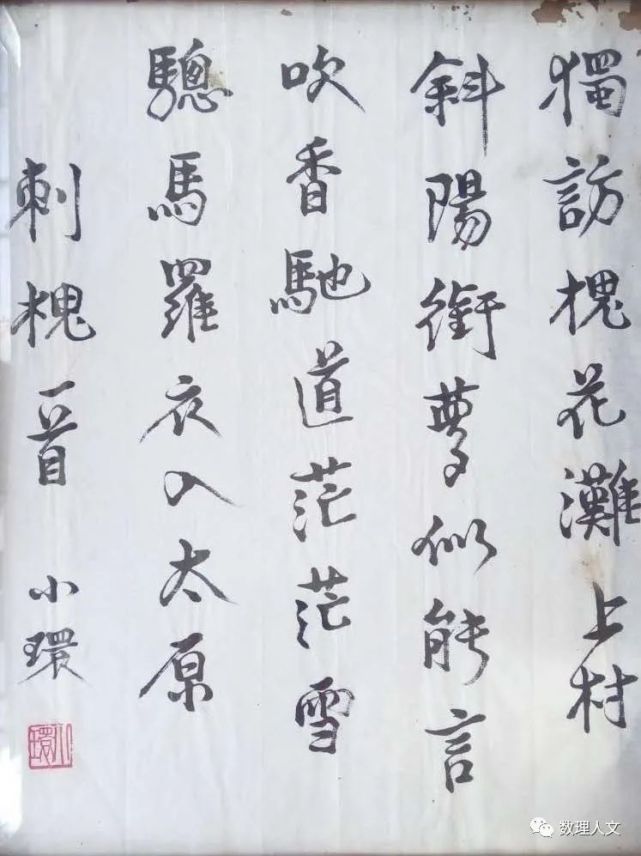 獨訪槐花灘上村
斜陽銜夢似能言
吹香馳道茫茫雪
驄馬羅衣入太原
刺槐一首 小環
小環
数理人文